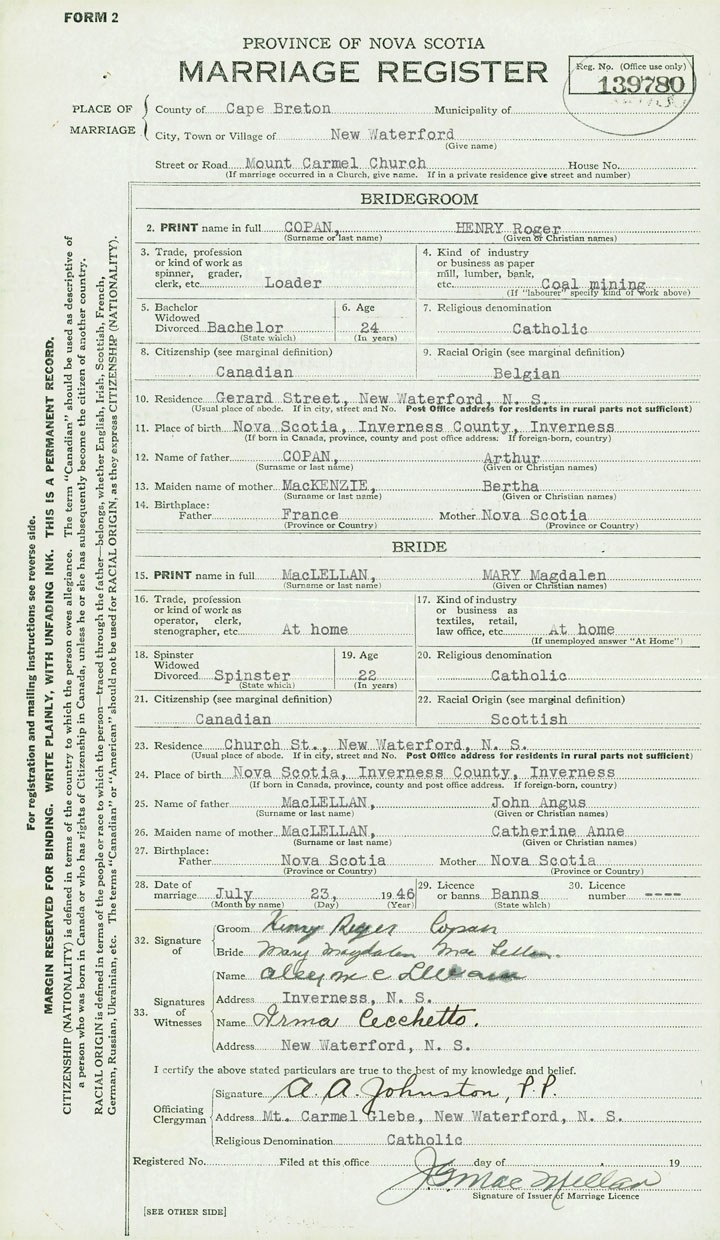 FORM 2
PROVINCE OF NOVA SCOTIA
MARRIAGE REGISTER
Reg. No. (Office use only)
139780
PLACE OF MARRIAGE
County of Cape Breton Municipality of
City, Town or Village of New Waterford
(Give name)
Street or Road Mount Carmel Church House No.
(If marriage occurred in a Church, give name. If in a private residence give street and number)
BRIDEGROOM
2. PRINT name in full COPAN, HENRY Roger
(Surname or last name) (Given or Christian names)
3. Trade, profession or kind of work as spinner, grader, clerk, etc. Loader
4. Kind of industry or business as paper mill, lumber, bank, etc. Coal mining
(If "labourer" specify kind of work above)
5. Bachelor Widowed Divorced Bachelor
(State which)
6. Age 24
(In years)
7. Religious denomination
Catholic
8. Citizenship (see marginal definition)
Canadian
9. Racial Origin (see marginal definition)
Belgian
10. Residence Gerard Street, New Waterford, N. S.
(Usual place of abode. If in city, street and No. Post Office address for residents in rural parts not sufficient)
11. Place of birth Nova Scotia, Inverness County, Inverness
(If born in Canada, province, county and post office address. If foreign-born, country)
12. Name of father COPAN, Arthur
(Surname or last name) (Given or Christian names)
13. Maiden name of mother MacKENZIE, Bertha
(Surname or last name) (Given or Christian names)
14. Birthplace:
Father France Mother Nova Scotia
(Province or Country) (Province or Country)
BRIDE
15. PRINT name in full MacLELLAN, MARY Magdalen
(Surname or last name) (Given or Christian names)
16. Trade, profession or kind of work as operator, clerk, stenographer, etc. At home
17. Kind of industry or business as textiles, retail, law office, etc. At home
(If unemployed answer "At Home")
18. Spinster Widowed Divorced Spinster
(State which)
19. Age 22
(In years)
20. Religious denomination
Catholic
21. Citizenship (see marginal definition)
Canadian
22. Racial Origin (see marginal definition)
Scottish
23. Residence Church St., New Waterford, N. S.
(Usual place of abode. If in city, street and No. Post Office address for residents in rural parts not sufficient)
24. Place of birth Nova Scotia, Inverness County, Inverness
(If born in Canada, province, county and post office address. If foreign-born, country)
25. Name of father MacLELLAN, John Angus
(Surname or last name) (Given or Christian names)
26. Maiden name of mother MacLELLAN, Catherine Anne
(Surname or last name) (Given or Christian names)
27. Birthplace:
Father Nova Scotia Mother Nova Scotia
(Province or Country) (Province or Country)
28. Date of marriage July 23, 1946
(Month by name) (Day) (Year)
29. Licence or banns Banns
(State which)
30. Licence number ----
32. Signature of
Groom Henry Roger Copan
Bride Mary Magdalen Mac Lellan.
33. Signatures of Witnesses
Name
Address Inverness, N. S.
Name Irma Cecchetto.
Address New Waterford, N. S.
I certify the above stated particulars are true to the best of my knowledge and belief.
Officiating Clergyman
Signature A. A. Johnston, P.P.
Address Mt. Carmel Glebe, New Waterford, N. S.
Religious Denomination Catholic
Registered No. Filed at this office day of 19
J G Mac Millan
Signature of Issuer of Marriage Licence
[SEE OTHER SIDE]
For registration and mailing instructions see reverse side.
MARGIN RESERVED FOR BINDING. WRITE PLAINLY, WITH UNFADING INK. THIS IS A PERMANENT RECORD.
CITIZENSHIP (NATIONALITY) is defined in terms of the country to which the person owes allegiance. The term "Canadian" should be used as descriptive of
a person who was born in Canada or who has rights of Citizenship in Canada, unless he or she has subsequently become the citizen of another country.
RACIAL ORIGIN is defined in terms of the people or race to which the person—traced through the father—belongs, whether English, Irish, Scottish, French,
German, Russian, Ukrainian, etc. The terms "Canadian" or "American" should not be used for RACIAL ORIGIN, as they express CITIZENSHIP (NATIONALITY).